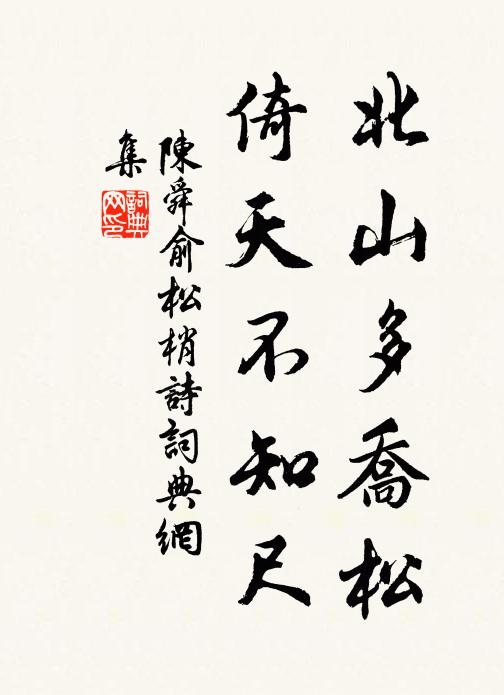 北山多喬松
倚天不知尺
陳舜俞松梢詩詞典網
集
詞典網印